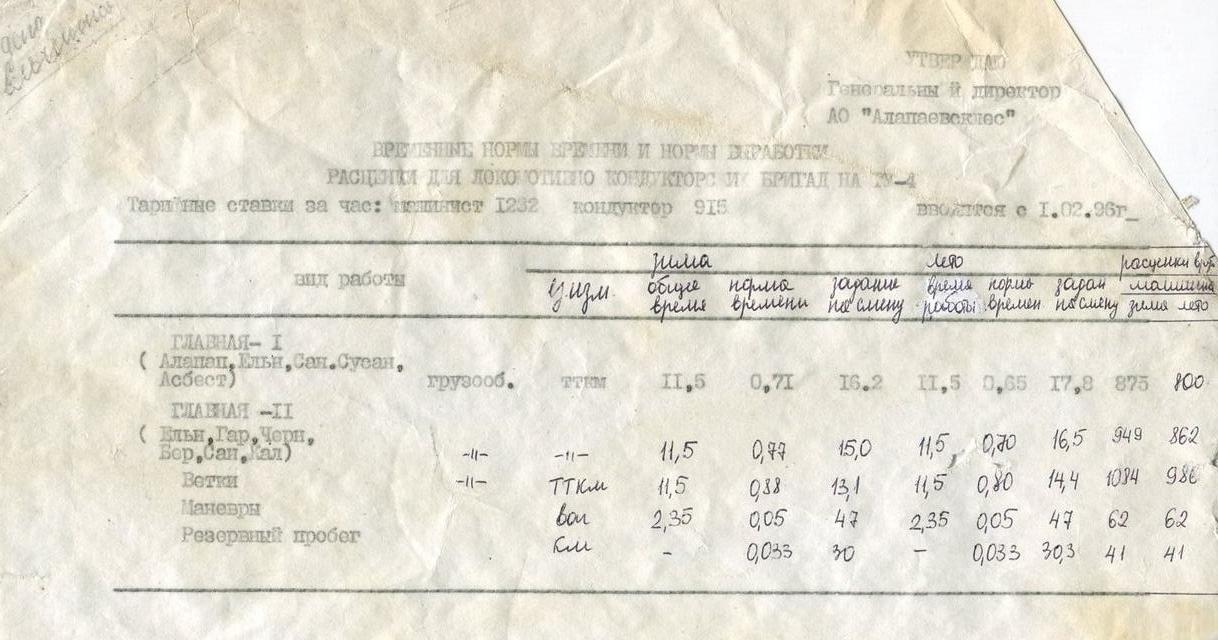 депо
УТВЕРЖДАЮ
Генеральный директор
АО "Алапаевсклес"
ВРЕМЕННЫЕ НОРМЫ ВРЕМЕНИ И НОРМЫ ВЫРАБОТКИ
РАСЦЕНКИ ДЛЯ ЛОКОМОТИВНО КОНДУКТОРСКИХ БРИГАД НА ТУ-4
Тарифные ставки за час: машинист I232 кондуктор 9I5 вводятся с I.02.96г_
зима лето расценки в руб
вид работы
общее норма задание время норма задан машинист
время времени на смену работы времен на смену зима лето
ГЛАВНАЯ- I
( Алапап,Ельн,Сан.Сусан,
Асбест) грузооб. ТТКМ II,5 0,7I I6.2 II,5 0,65 I7,8 875 800
ГЛАВНАЯ -II
( Ельн,Гар,Черн,
Бер,Сан,Кал) -"- -"- 11,5 0,77 15,0 11,5 0,70 16,5 949 862
Ветки -"- ТТКМ 11,5 0,88 13,1 11,5 0,80 14,4 1084 986
Маневры ваг 2,35 0,05 47 2,35 0,05 47 62 62
Резервный пробег км - 0,033 30 - 0,033 30,3 41 41